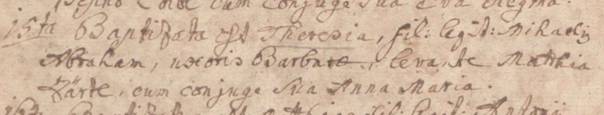 cum conjuge sua Eva Regina.
15ta Baptizata est Theresia, fil: legit: Mihaelis
Abraham, uxoris Barbarae, levante Matthia
cum conjuge sua Anna Maria.